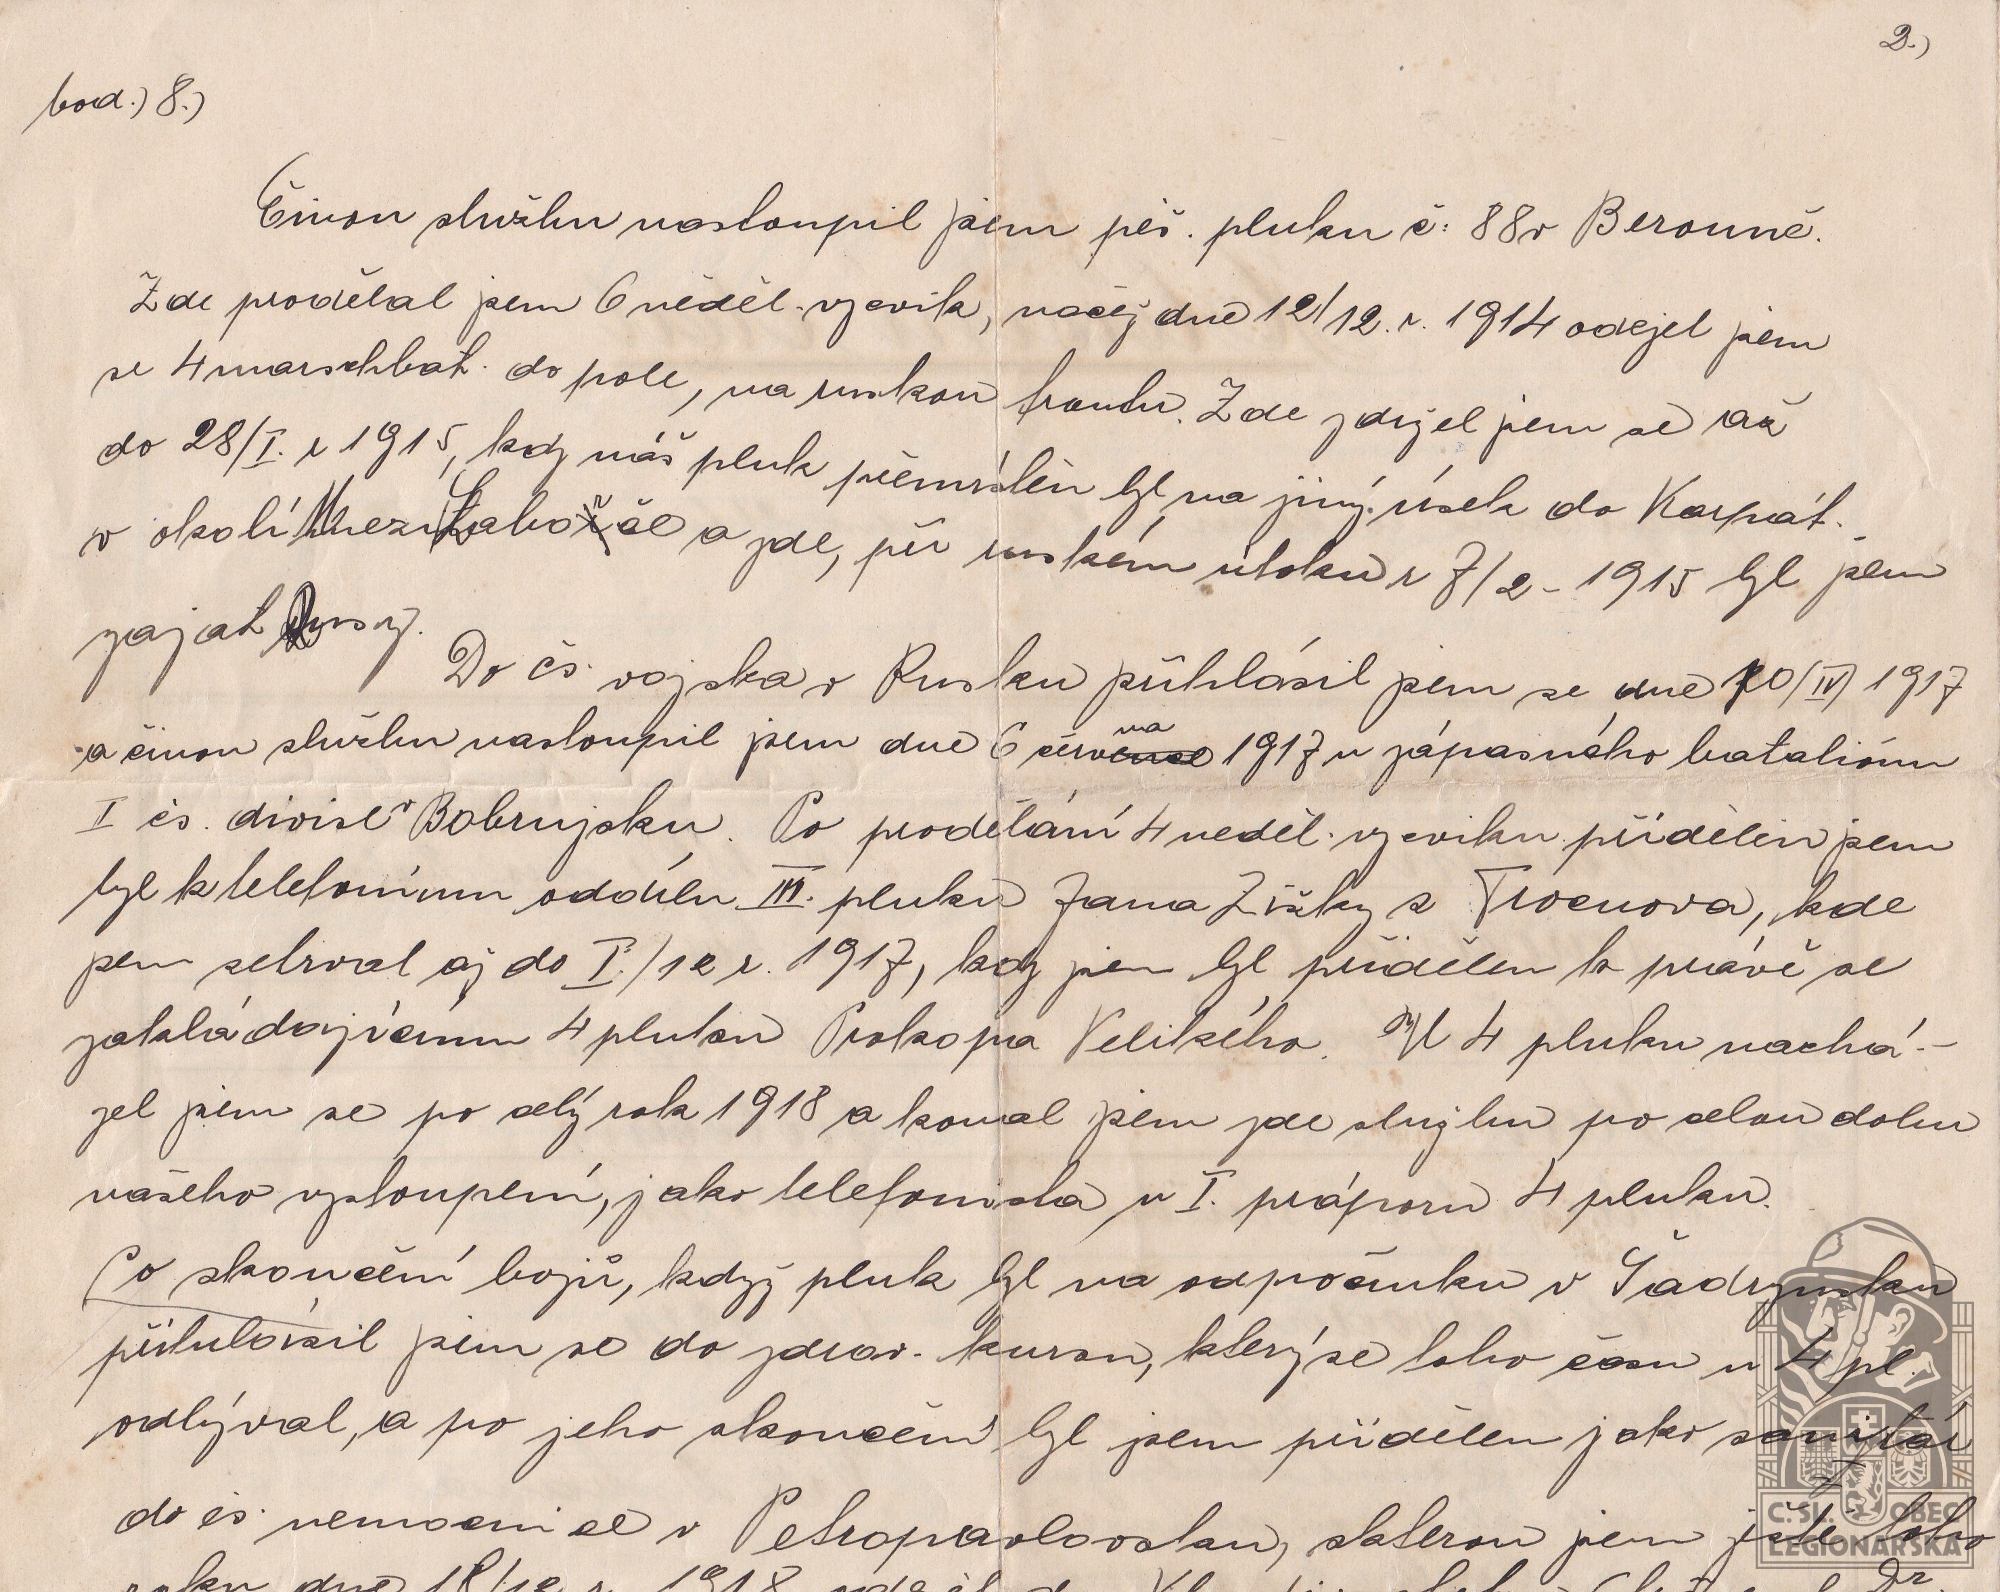 2.)
bod.) 8.)
Činou službu nastoupil jsem pěš. pluku č: 88 v Berouně.
Zde prodělal jsem 6 něděl. vycvik, načež dne 12/12. r. 1914 odejel jsem
se 4 marschbat. do pole, na ruskou frontu. Zde zdržel jsem se až
do 28/I. r 1915, kdy náš pluk přemístěn byl na jiný úsek do Karpat.
v okolí Mezi Laborče a zde, při ruském útoku r 7/2 - 1915 byl jsem
zajat Rusy.
Do čs. vojska v Rusku přihlásil jsem se dne 10/IV 1917
a činou službu nastoupil jsem dne 6 června 1917 u zápasného bataliónu
I čs. divise v Bobrujsku. Po prodělání 4 neděl. vycviku přídělen jsem
byl k telefonímu oddílu III. pluku Jana Žižky z Trocnova, kde
jsem setrval až do I./12 r. 1917, kdy jsem byl přidělen k právě se
zakládajícímu 4 pluku Prokopa Velikého. U 4 pluku nachá-
zel jsem se po celý rok 1918 a konal jsem zde službu po celou dobu
našeho vystoupení, jako telefonista u I. práporu 4 pluku.
Po skončění bojů, když pluk byl na odpočinku v Šadrynsku
přihlásil jsem se do zdrav. kursu, který se toho času u 4 pl.
odbýval, a po jeho skončění byl jsem přídělen jako sanitář
do čs. nemocnice v Petropavlovsku, s kterou jsem ještě toho
roku dne 18/12 r. 1918
Č.SL. OBEC
LEGIONÁŘSKÁ